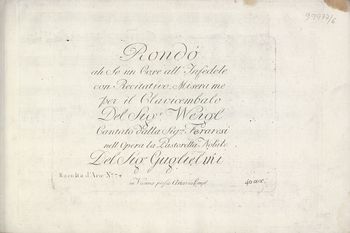 Rondó
ah Se un Core all' Infedele
con Recitativo Misera me
per il Clavicembalo
Del Sigr Weigl
Cantato dalla Sigra Feraresi
nell Opera la Pastorella Nobile
Del Sig Guglielmi
Raccolta d'Arie No. 74
in Vienna presso Artaria Comp.
40 xr.